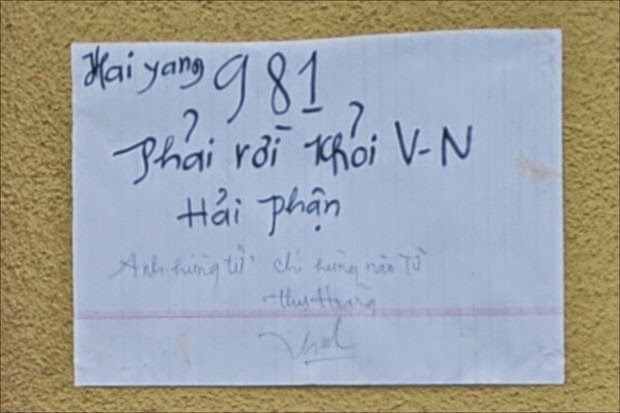 Hai yang 981
Phải rời khỏi V-N
Hải phận
Anh hùng tử, chí hùng nào tử
Thu Hoàng